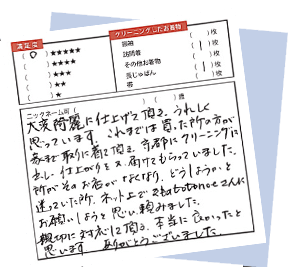 満足度
( 0 )★★★★★
( )★★★★
( )★★★
( )★★
( )★
クリーニングしたお着物
留袖 ( )枚
訪問着 ( | )枚
その他お着物 ( )枚
長じゅばん ( | )枚
帯 ( )枚
ニックネーム可( ) ( )歳
大変綺麗に仕上げて頂き、うれしく
思っています。これまでは買った所の方が
家まで取りに着て頂き、京都にクリーニングに
出し、仕上がりを又、届けてもらっていました。
所がそのお店がなくなり、どうしようかと
迷っていた所、ネット上で きもの totonoe さんに
お願いしようと思い、頼みました。
親切に対応して頂き、本当に良かったと
思います。ありがとうございました。